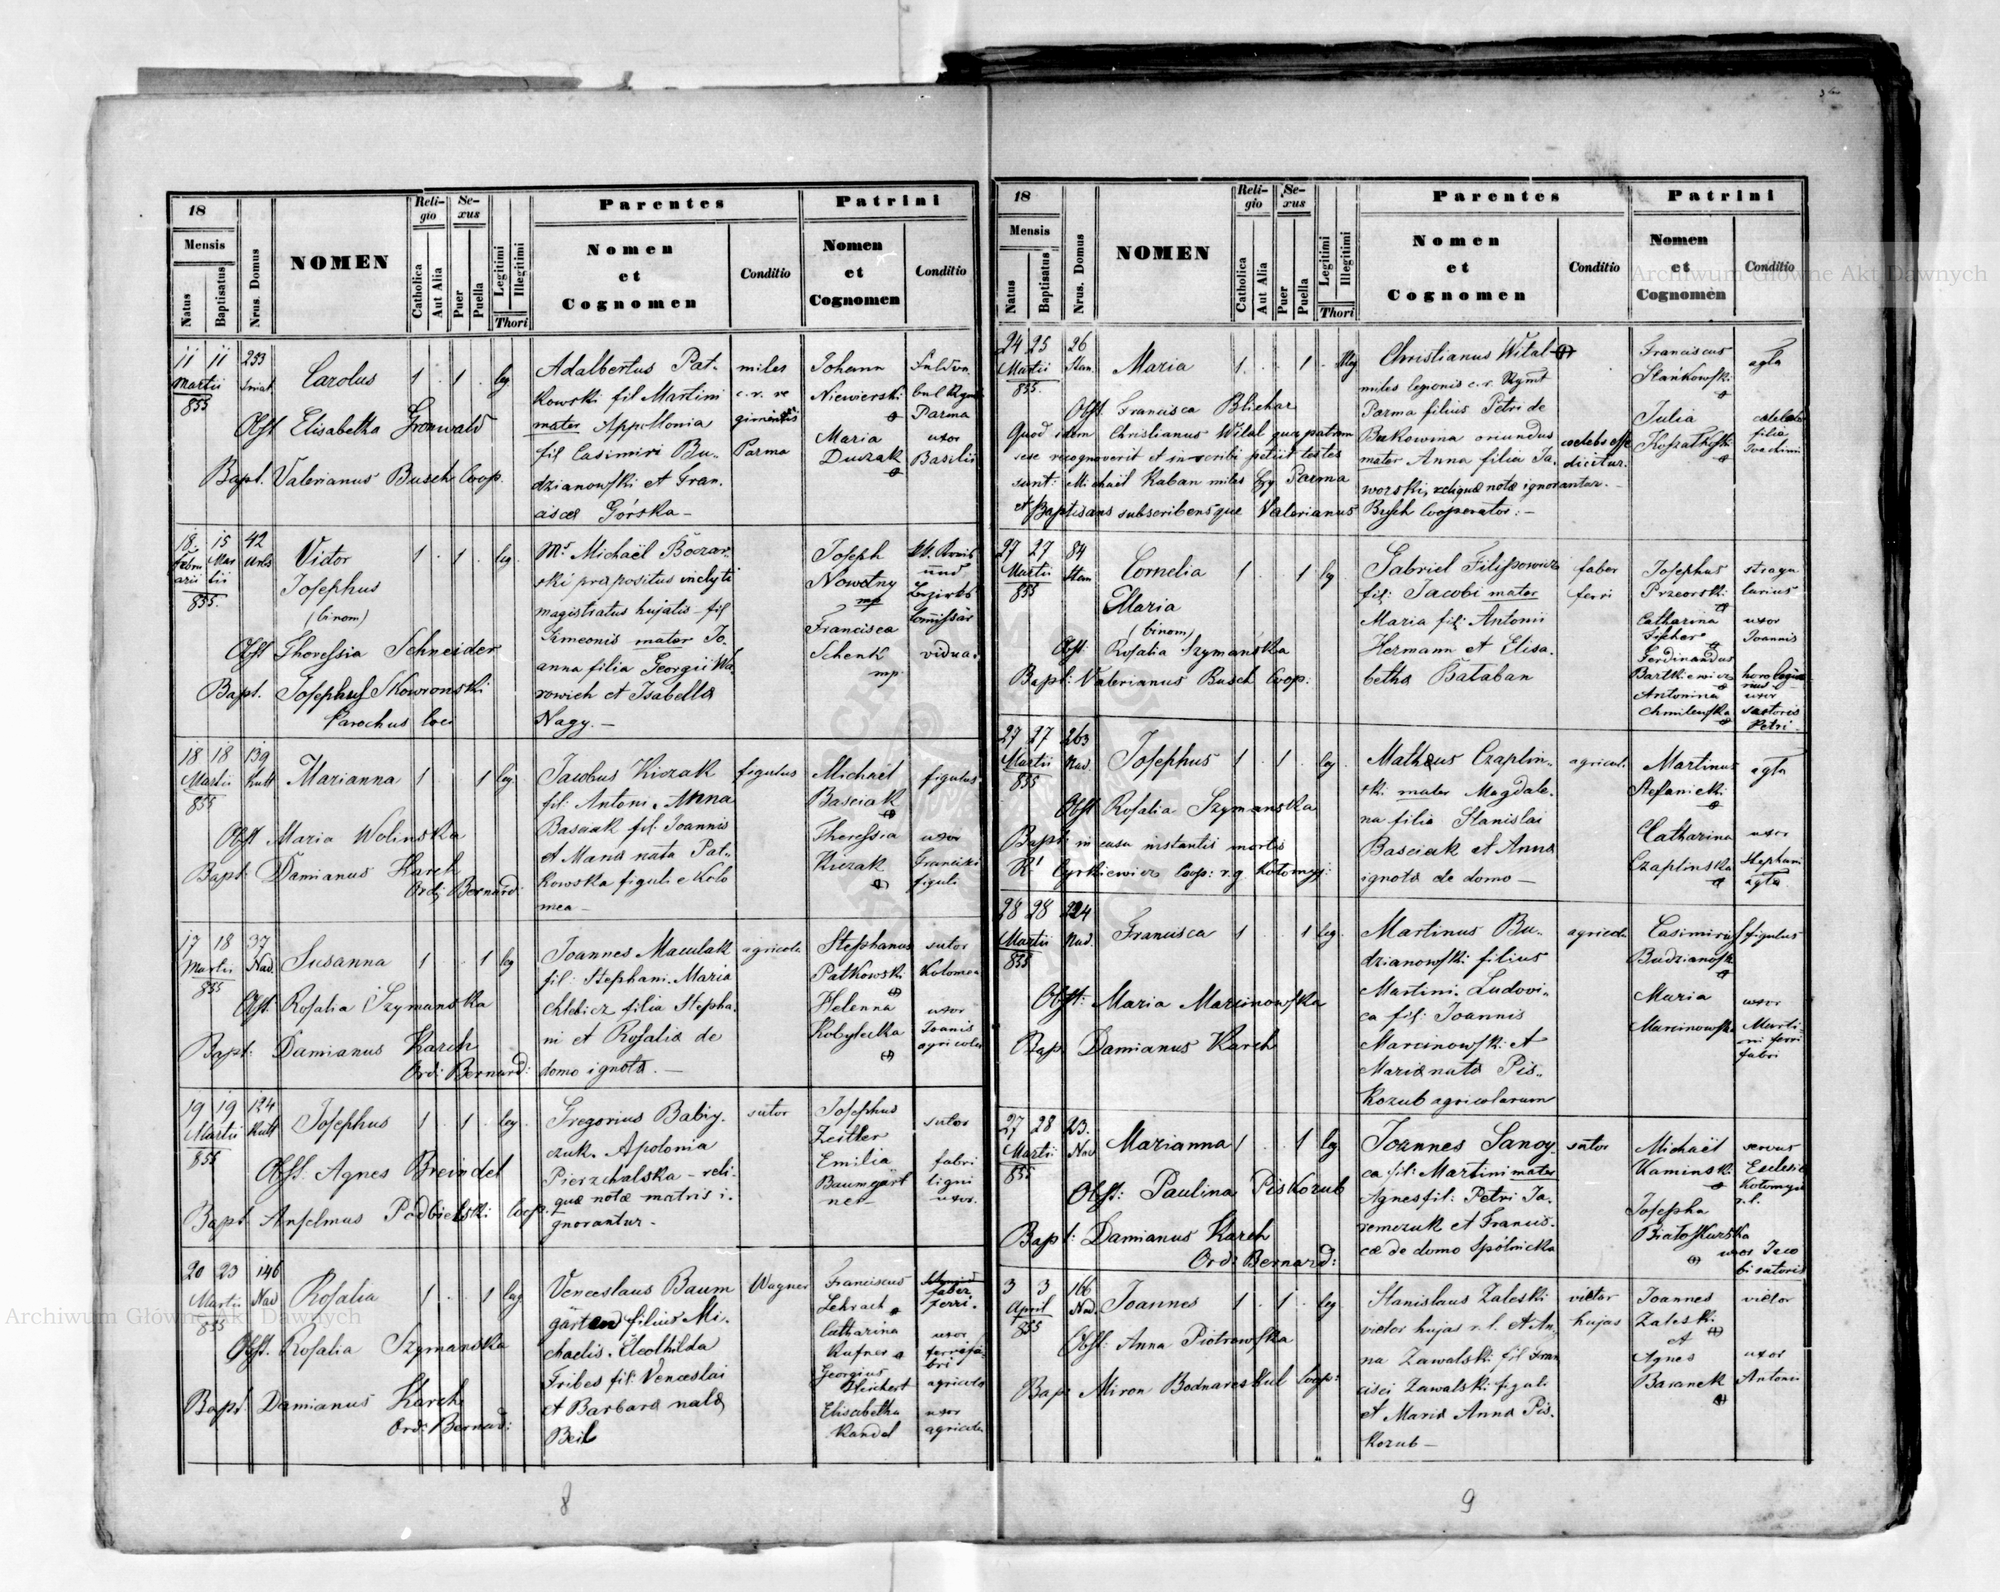 18
Mensis
Natus
Baptisatus
Nrus. Domus
NOMEN
Religio
Catholica
Aut Alia
Sexus
Puer
Puella
Legitimi
Illegitimi
Thori
Parentes
Nomen
et
Cognomen
Conditio
Patrini
Nomen
et
Cognomen
Conditio
11 11 253
Martii
855
Carolus 1 . 1 . leg
Obst Elisabetha Gronwald
Bapt. Valerianus Busch Coop.
Adalbertus Pat-
kowski fil Martini
mater Appollonia
fil Casimiri Bu-
dzianowski et Fran-
cisca Górska —
miles
c. r. re
giments
Parma
Johann
Niewierski
Maria
Duszak
Parma
uxor
Basilii
18 15 42
Febru Mar
arii tii
855.
Victor 1 . 1 . leg
Josephus
(binom)
Obst Theressia Schneider
Bapt. Josephus Skowronski
Parochus loci
Mr Michaël Boczar-
ski præpositus inclyti
magistratus hujatis fil
Simeonis mater Jo-
anna filia Georgii Wa-
rowich et Isabella
Nagy. —
Joseph
Nowotny
mp
Francisca
Schenk
mp.
und
Bezirks
Commissär
vidua.
18 18 139
Martii Kutt
855
Marianna 1 . . 1 leg
Obst Maria Wolinska
Bapt: Damianus Karch
Ord: Bernard:
Jacobus Kiczak
fil: Antoni. Anna
Basciak fil: Joannis
et Maria nata Pat-
kowska figuli e Kolo
mea —
figulus
Michaël
Basciak
Theressia
Kiczak
figulus
uxor
Francisci
figuli
17 18 37
Martii Nad.
855
Susanna 1 . . 1 leg
Obst. Rosalia Szymanska
Bapt: Damianus Karch
Ord: Bernard:
Joannes Maculak
fil: Stephani. Maria
Chlebicz filia Stepha-
ni et Rosalia de
domo ignota. —
agricola
Stephanus
Patkowski
Helenna
Kobylecka
sutor
Kolomea
uxor
Joanis
agricola
19 19 124
Martii Kutt
855
Josephus 1 . 1 . leg.
Obst. Agnes Breindel
Bapt. Anselmus Podbielski Coop.
Gregorius Babiy-
czuk. Apolonia
Pierzchalska — reli-
quæ notæ matris i-
gnorantur. —
sutor
Josephus
Zeitler
Emilia
Baumgärt
ner
sutor
fabri
ligni
uxor.
20 23 146
Martii Nad
855
Rosalia 1 . . 1 leg
Obst. Rosalia Szymanska
Bapt. Damianus Karch
Ord: Bernard:
Venceslaus Baum
gärten filius Mi-
chaelis. Cleothilda
Fribes fil: Venceslai
et Barbara nata
Beil
Wagner
Franciscus
Lehrach
Catharina
Kufner
Georgius
Reichert
Elisabetha
Kandel
faber
ferri.
uxor
ferrifa-
bri
agricola
uxor
agricola
8
18
Mensis
Natus
Baptisatus
Nrus. Domus
NOMEN
Religio
Catholica
Aut Alia
Sexus
Puer
Puella
Legitimi
Illegitimi
Thori
Parentes
Nomen
et
Cognomen
Conditio
Patrini
Nomen
et
Cognomen
Conditio
24 25 26
Martii Stan.
855.
Maria 1 . . 1 . Illeg
Obst. Francisca Blichar
Quod idem Christianus Wital qua patrem
sese recognoverit et inscribi petiit testes
sunt: Michaël Kaban miles Parma
et Baptisans subscribensque Valerianus
Christianus Wital
miles legonis c. r. Rgmt
Parma filius Petri de
Bukowina oriundus
mater Anna filia Ja-
worski, reliquæ notæ ignorantur. —
Busch Cooperator: —
coelebs esse
dicitur.
Franciscus
Stankowski
Julia
agla
filia
Joachimi
27 27 84
Martii Stan
855
Cornelia 1 . . 1 leg
Maria
(binom)
Obst: Rosalia Szymańska
Bapt: Valerianus Busch Coop:
Gabriel Filipowicz
fil: Jacobi mater
Maria fil: Antonii
Hermann et Elisa-
betha Bataban
faber
ferri
Josephus
Przeorski
Catharina
Fischer
Ferdinandus
Bartkiewicz
Antonina
Chmilewska
stragu
larius
uxor
Joannis
horologia-
rius
uxor
sartoris
Petri.
27 27 263
Martii Nad.
855
Josephus 1 . 1 . leg.
Obst Rosalia Szymanska
Bapt: in casu instantis mortis
Rs Cyrkiewicz Coop: r. g. Kolomyj:
Matheus Czaplin-
ski mater Magdale-
na filia Stanislai
Basciak et Anna
ignota de domo —
agricol:
Martinus
Stefanicki
Catharina
Czaplinska
agla
uxor
Stephani
agla
28 28 224
Martii Nad.
855
Francisca 1 . . 1 leg.
Obst: Maria Marcinowska
Bap: Damianus Karch
Martinus Bu-
dzianowski filius
Martini. Ludovi-
ca fil: Joannis
Marcinowski et
Maria nata Pis-
kozub agricolarum
agricol:
Casimirus
Budzianowski
Maria
Marcinowska
figulus
uxor
Marti-
ni ferri
fabri
27 28 23.
Martii Nad
855
Marianna 1 . . 1 leg
Obst: Paulina Piskozub
Bapt: Damianus Karch
Ord: Bernard:
Joannes Sanoy-
ca fil: Martini mater
Agnes fil: Petri Ja-
remczuk et Francis-
cæ de domo Spólnicka
sutor
Michaël
Kaminski
Josepha
Białoskurska
servus
Eclesiæ
Kolomyja
r. l.
uxor Jaco
bi sutoris
3 3 166
April Nad.
855
Joannes 1 . 1 . leg
Obst: Anna Piotrowska
Bap: Miron Bodnareskul Coop:
Stanislaus Zaleski
victor hujas r. l. et An-
na Zawalski fil Fran
cisci Zawalski figuli
et Maria Anna Pis-
kozub —
victor
hujas
Joannes
Zaleski
et
Agnes
Baranek
victor
uxor
Antoni
9
Archiwum Główne Akt Dawnych
Archiwum Główne Akt Dawnych